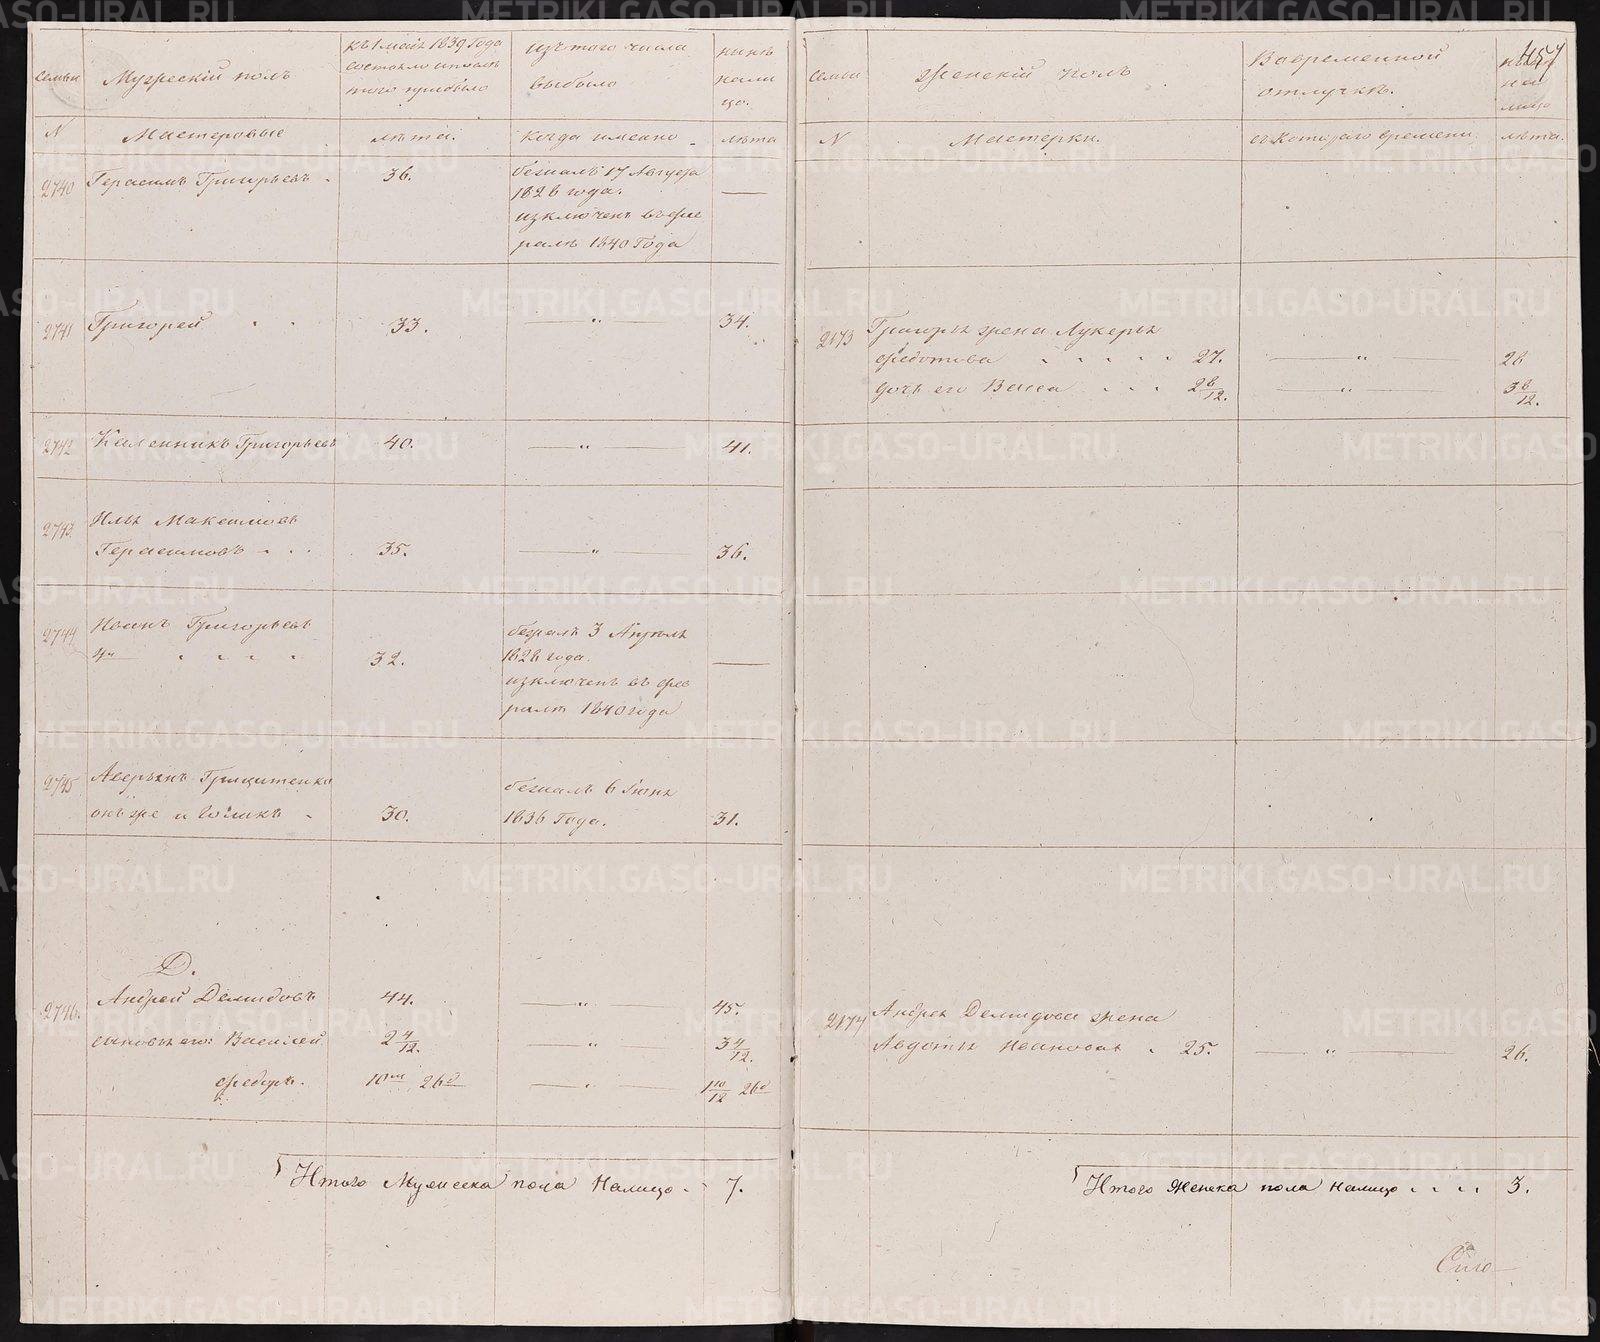 457
семьи
Мужескiй полъ
къ 1 маiя 1839 Года
состояло и послѣ
того прибыло
изъ того числа
выбыло
нынѣ
нали
цо.
N
Мастеровые
лѣта.
когда имянно
лѣта
2740
Герасимъ Григорьевъ
36.
бежалъ 17 Августа
1828 года.
изключенъ въ фев
ралѣ 1840 Года
2741
Григорей
33.
"
34.
2742
Калинникъ Григорьевъ
40.
"
41.
2743
Илья Максимовъ
Герасимовъ
35.
"
36.
2744
Иванъ Григорьевъ
4й
32.
бежалъ 3 Апрѣля
1828 года.
изключенъ въ фев
ралѣ 1840 года
2745
Аверьянъ Грицитенко
онъ же и Голикъ
30.
бежалъ 6 Iюня
1836 Года.
31.
Д.
2746.
Андрей Демидовъ
44.
"
45.
сыновья его: Василей
2 4/12.
"
3 4/12.
Федоръ.
10м 26д
"
1 10/12 26д
Итого Мужеска пола налицо 7.
семьи
Женскiй полъ
Вовременной
отлучкѣ.
нали
лицо
N
Мастерки.
съ котораго времени
лѣта.
2173
Григорья жена Лукерья
Федотова 27.
"
28
дочь его Васса 2 8/12.
"
3 8/12.
2174
Андрея Демидова жена
Авдотья Иванова 25.
"
26.
Итого Женска пола налицо 3.
METRIKI.GASO-URAL.RU